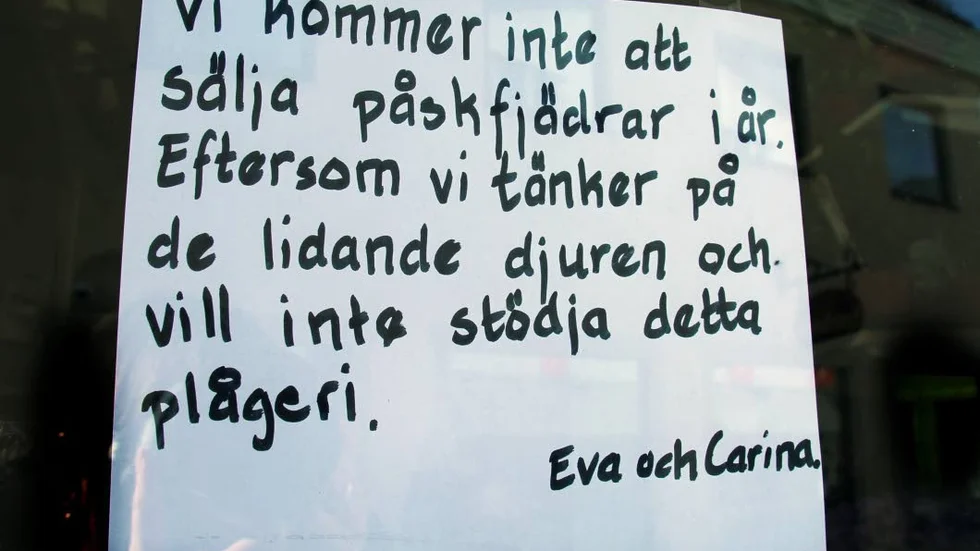 Vi kommer inte att
sälja påskfjädrar i år.
Eftersom vi tänker på
de lidande djuren och
vill inte stödja detta
plågeri.
Eva och Carina.